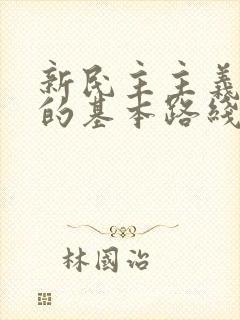 新民主主義
的基本路綫
林國治